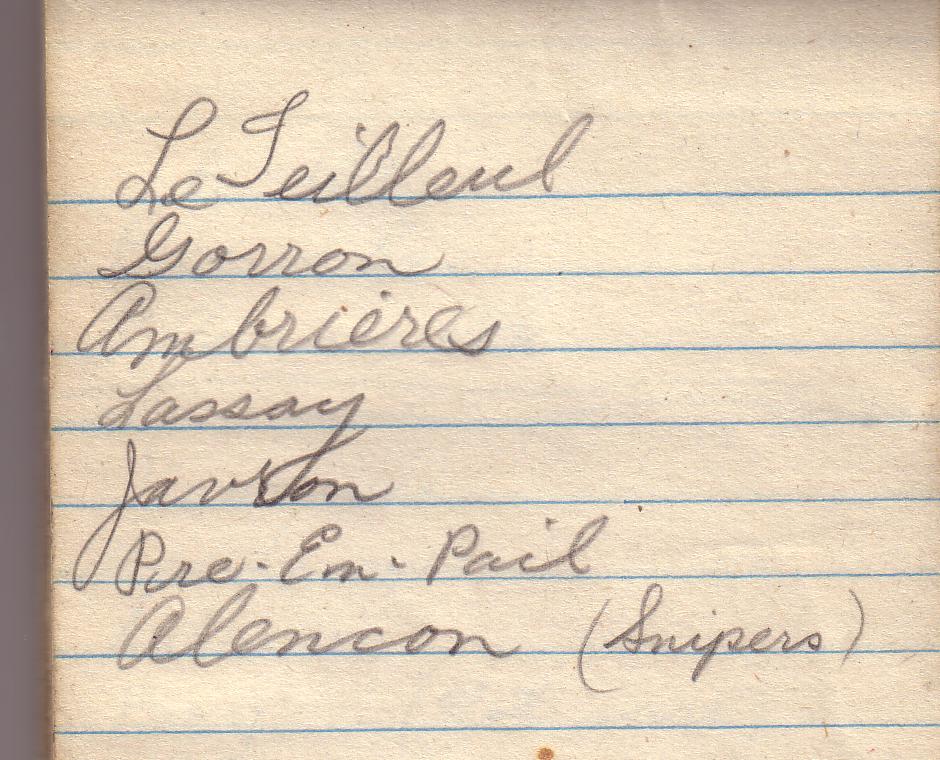 Le Teilleul
Gorron
Ambrieres
Lassay
Javron
Pre-Em-Pail
Alencon (Snipers)